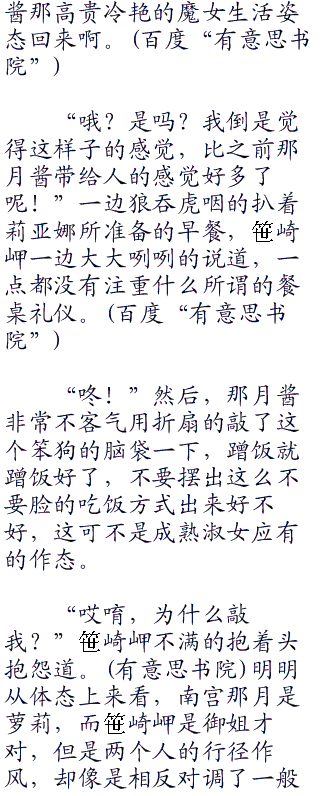 酱那高贵冷艳的魔女生活姿
态回来啊。(百度“有意思书
院”)
“哦?是吗?我倒是觉
得这样子的感觉,比之前那
月酱带给人的感觉好多了
呢!”一边狼吞虎咽的扒着
莉亚娜所准备的早餐,笹崎
岬一边大大咧咧的说道,一
点都没有注重什么所谓的餐
桌礼仪。(百度“有意思书
院”)
“咚!”然后,那月酱
非常不客气用折扇的敲了这
个笨狗的脑袋一下,蹭饭就
蹭饭好了,不要摆出这么不
要脸的吃饭方式出来好不
好,这可不是成熟淑女应有
的作态。
“哎唷,为什么敲
我?”笹崎岬不满的抱着头
抱怨道。(有意思书院)明明
从体态上来看,南宫那月是
萝莉,而笹崎岬是御姐才
对,但是两个人的行径作
风,却像是相反对调了一般